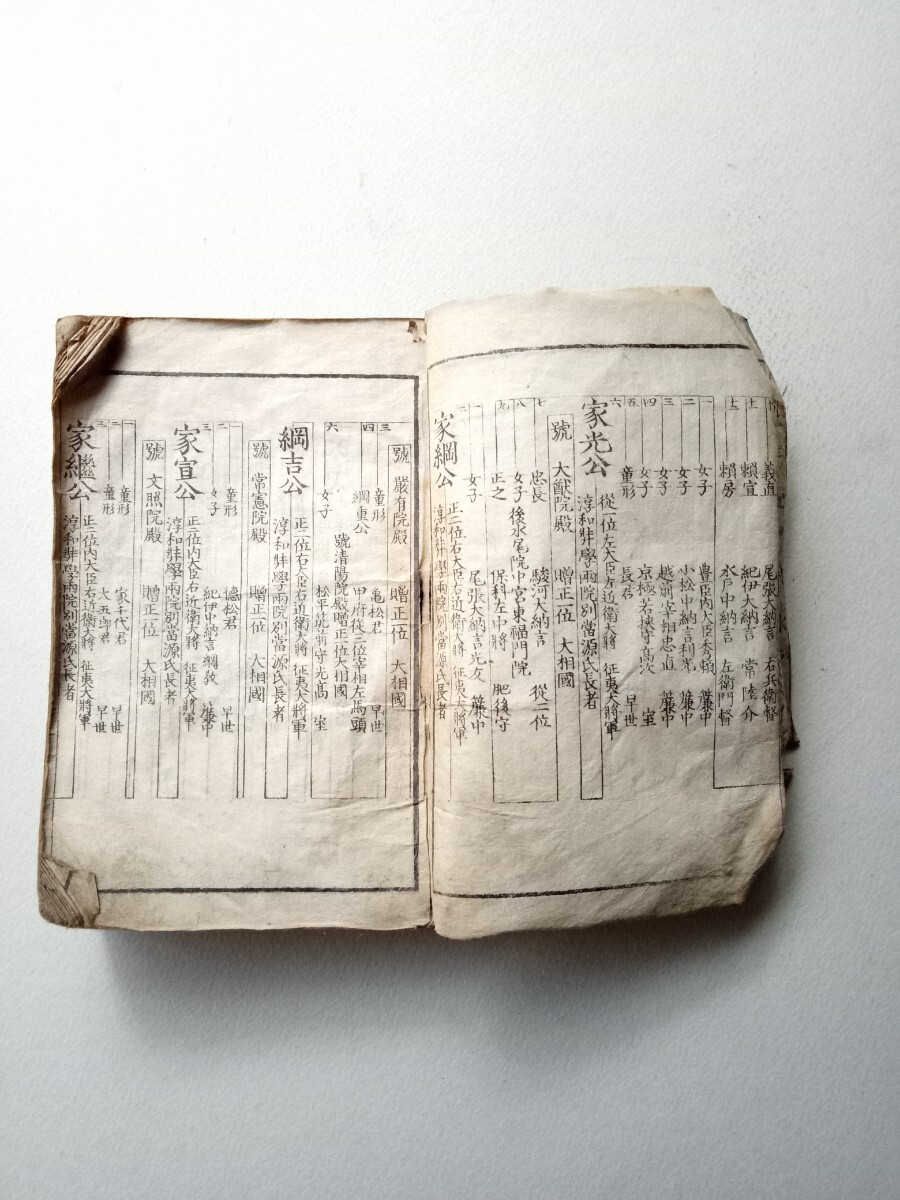 十 義直 尾張大納言 右兵衛督
十一 賴宣 紀伊大納言 常陸介
十二 賴房 水戸中納言 左衛門督
一 女子 豊臣内大臣秀頼 簾中
二 女子 小松中納言利光 簾中
三 女子 越前宰相忠直 簾中
四 女子 京極若狭守高次 室
五 童形 長君 早世
六 家光公 從一位左大臣左近衛大将 征夷大将軍
淳和弉學兩院別當源氏長者
號 大猷院殿 贈正一位 大相國
七 忠長 駿河大納言 從二位
八 女子 後水尾院中宮東福門院
九 正之 保科左中将 肥後守
一 女子 尾張大納言光友 簾中
二 家綱公 正二位右大臣右近衛大将 征夷大将軍
淳和弉學兩院別當源氏長者
號 嚴有院殿 贈正一位 大相國
三 童形 亀松君 早世
四 綱重公 甲府從三位宰相左馬頭
號清陽院殿贈正一位大相國
六 女子 松平能登守光高 室
綱吉公 正二位右大臣右近衛大将 征夷大将軍
淳和弉學兩院別當源氏長者
號 常憲院殿 贈正一位 大相國
一 童形 德松君 早世
二 女子 紀伊中納言綱教 簾中
三 家宣公 正二位内大臣右近衛大将 征夷大将軍
淳和弉學兩院別當源氏長者
號 文照院殿 贈正一位 大相國
一 童形 家千代君 早世
二 童形 大五郎君 早世
三 家繼公 正二位内大臣右近衛大将 征夷大将軍
淳和弉學兩院別當源氏長者